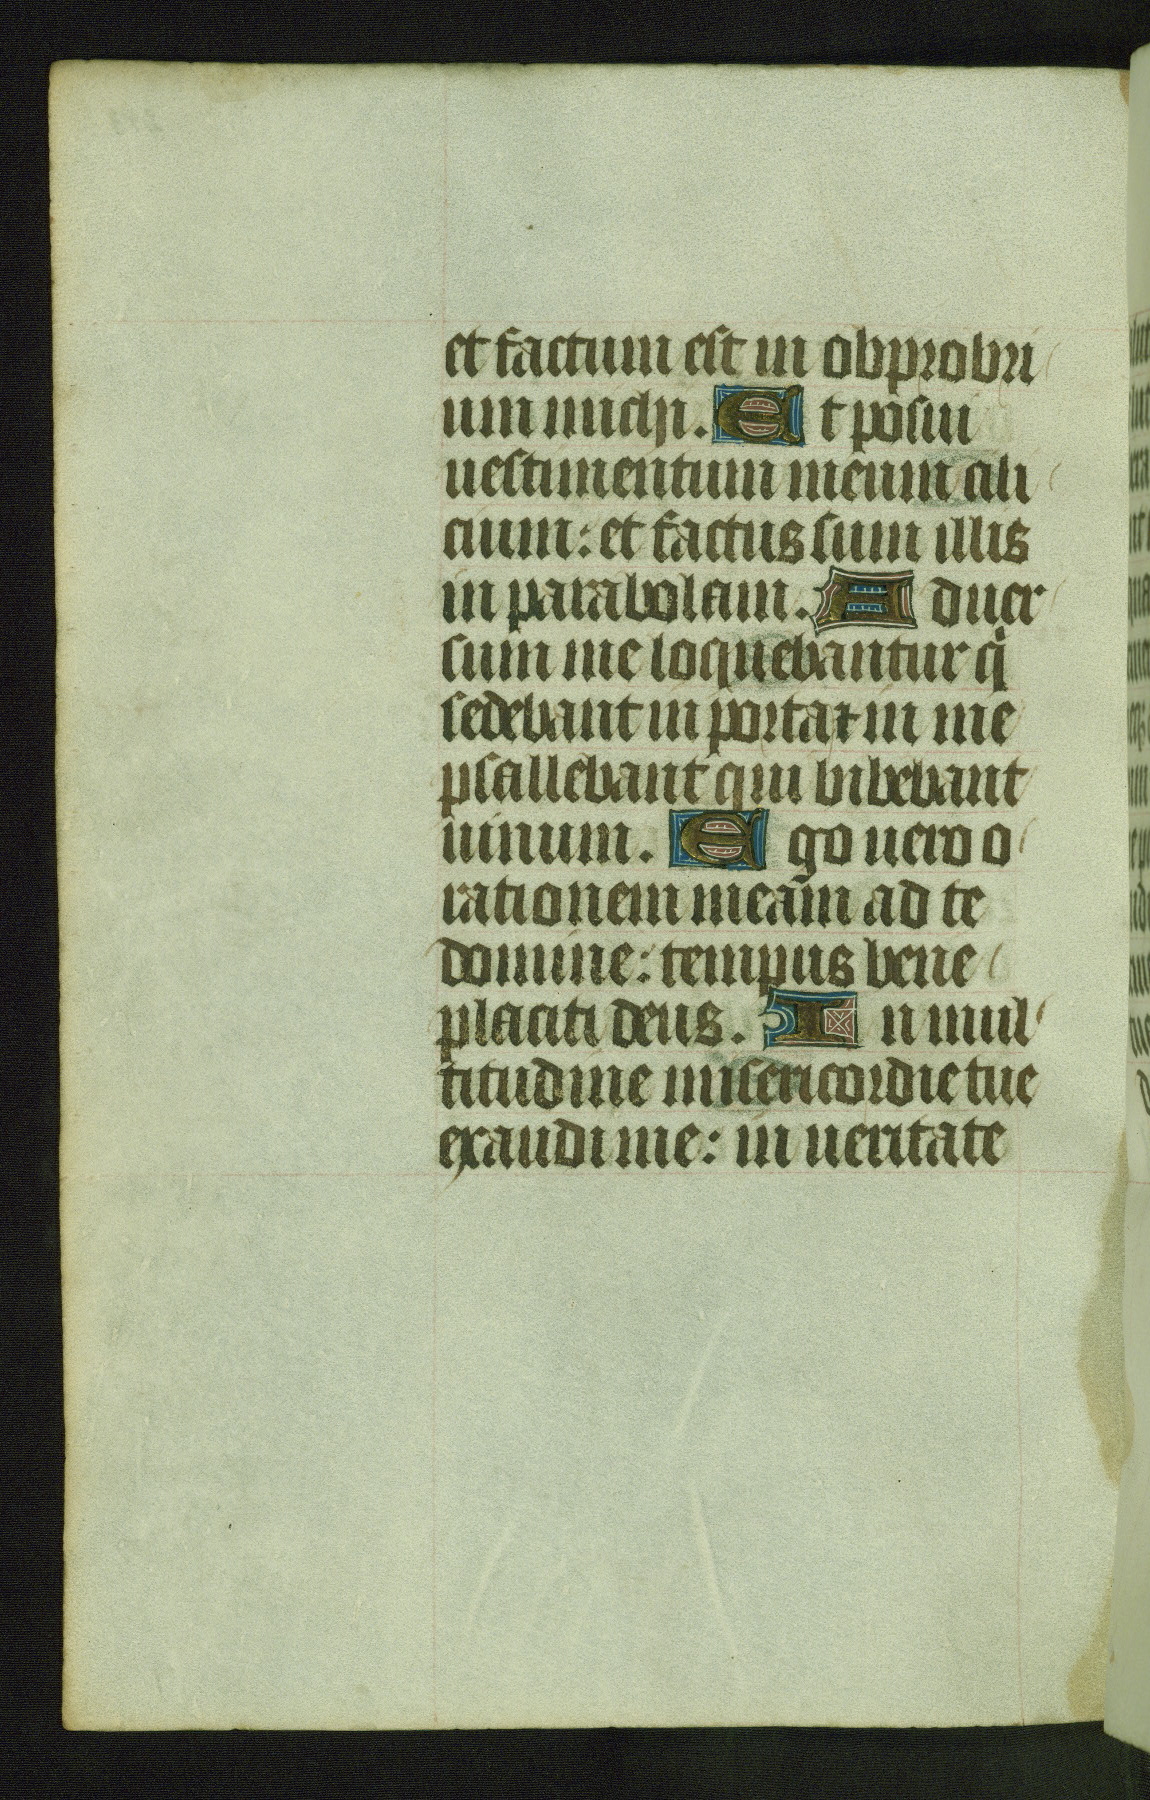 et factum est in obprobri
um michi. Et posui
uestimentum meum cili
cium: et factus sum illis
in parabolam. Aduer
sum me loquebantur qͥ
sedebant in porta ⁊ in me
psallebant qui bibebant
uinum. Ego uero o
rationem meam̄ ad te
domine: tempus bene
placiti deus. In mul
titudine misericordie tue
exaudi me: in ueritate